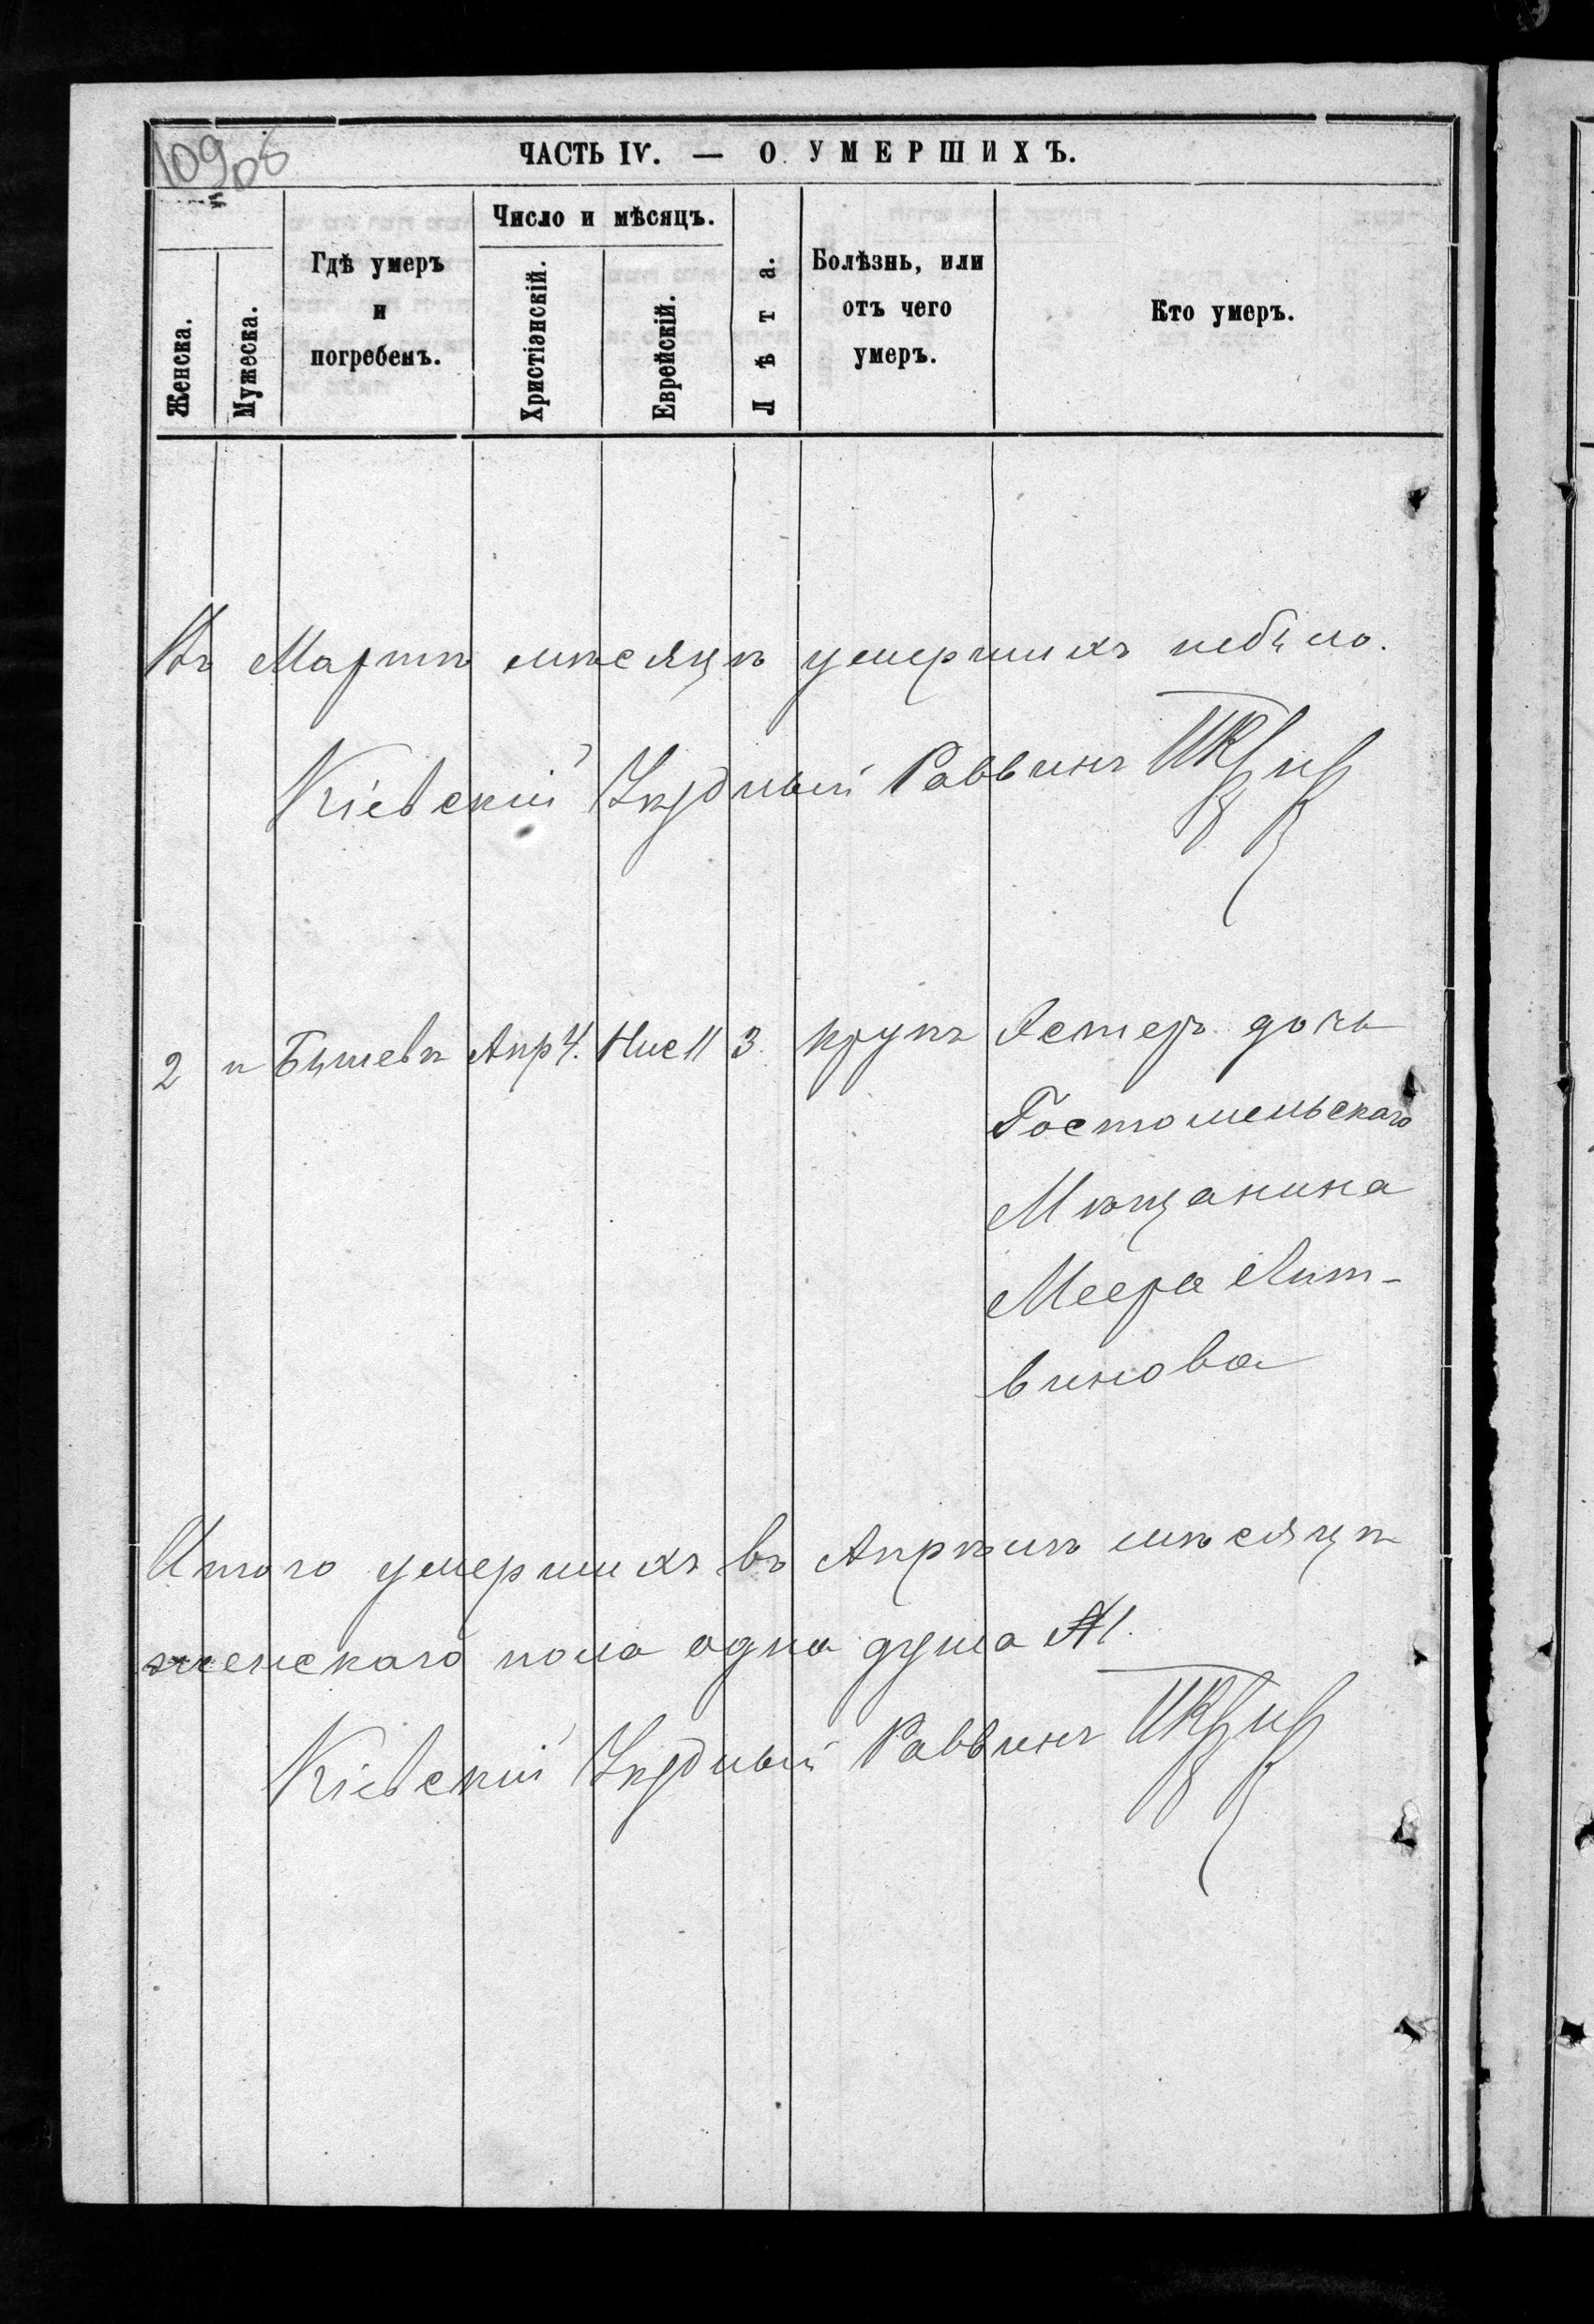 109
ЧАСТЬ IV. — О УМЕРШИХЪ.
Женска.
Мужеска.
Гдѣ умеръ и погребенъ.
Число и мѣсяцъ.
Христіанскій.
Еврейскій.
Лѣта.
Болѣзнь, или отъ чего умеръ.
Кто умеръ.
Въ Мартѣ мѣсяцѣ умершихъ небыло.
Кіевскій Уѣздный Раввинъ
2 „ Бышевѣ Апр 4. Нис 11 3. крупъ Эстеръ дочь
Гостомельскаго
Мѣщанина
Меера Лит-
винова
Итого умершихъ въ Апрѣлѣ мѣсяцѣ
женскаго пола одна душа 1.
Кіевскій Уѣздный Раввинъ